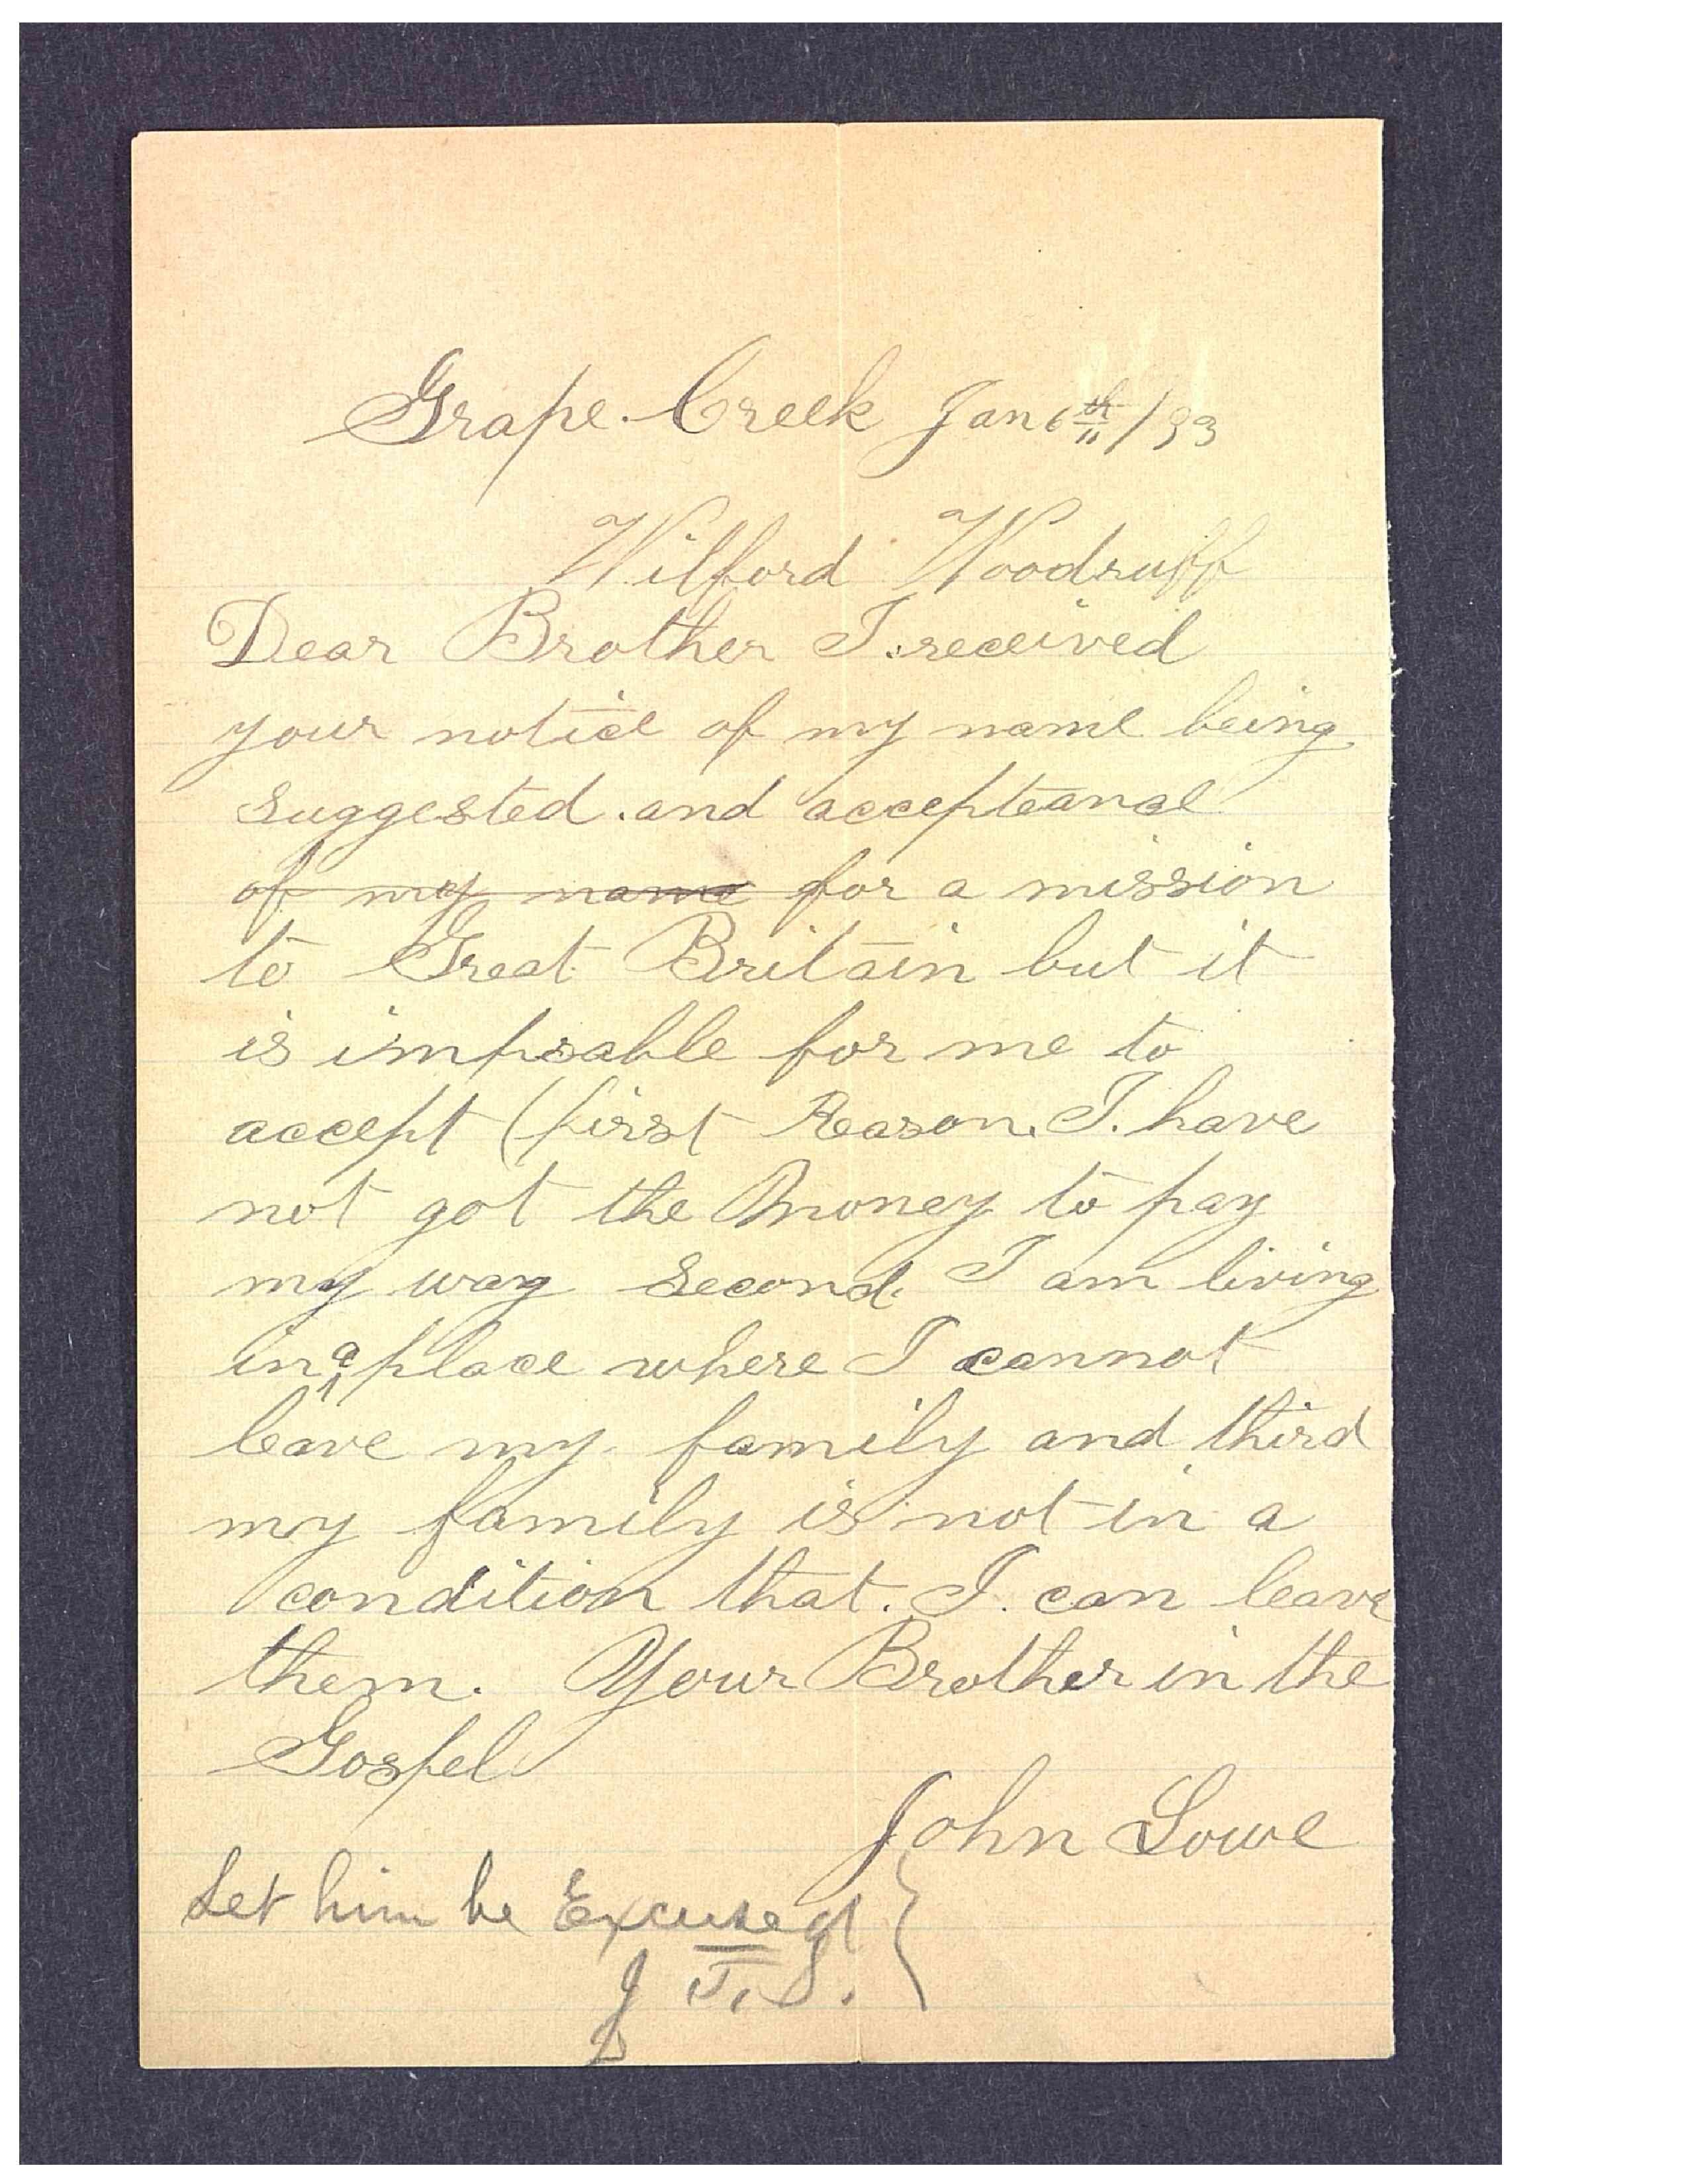 Grape Creek Jan 6th/93
Wilford Woodruff
Dear Brother I received
your notice of my name being
suggested and accepteance
~~of my name~~ for a mission
to Great Britain but it
is impsable for me to
accept (first Reason. I. have
not got the Money to pay
my way Second. I am living
in a place where I cannot
leave my family and third
my family is not in a
condition that. I. can leave
them. Your Brother in the
Gospel
John Lowe
Let him be Excused
J F. S.